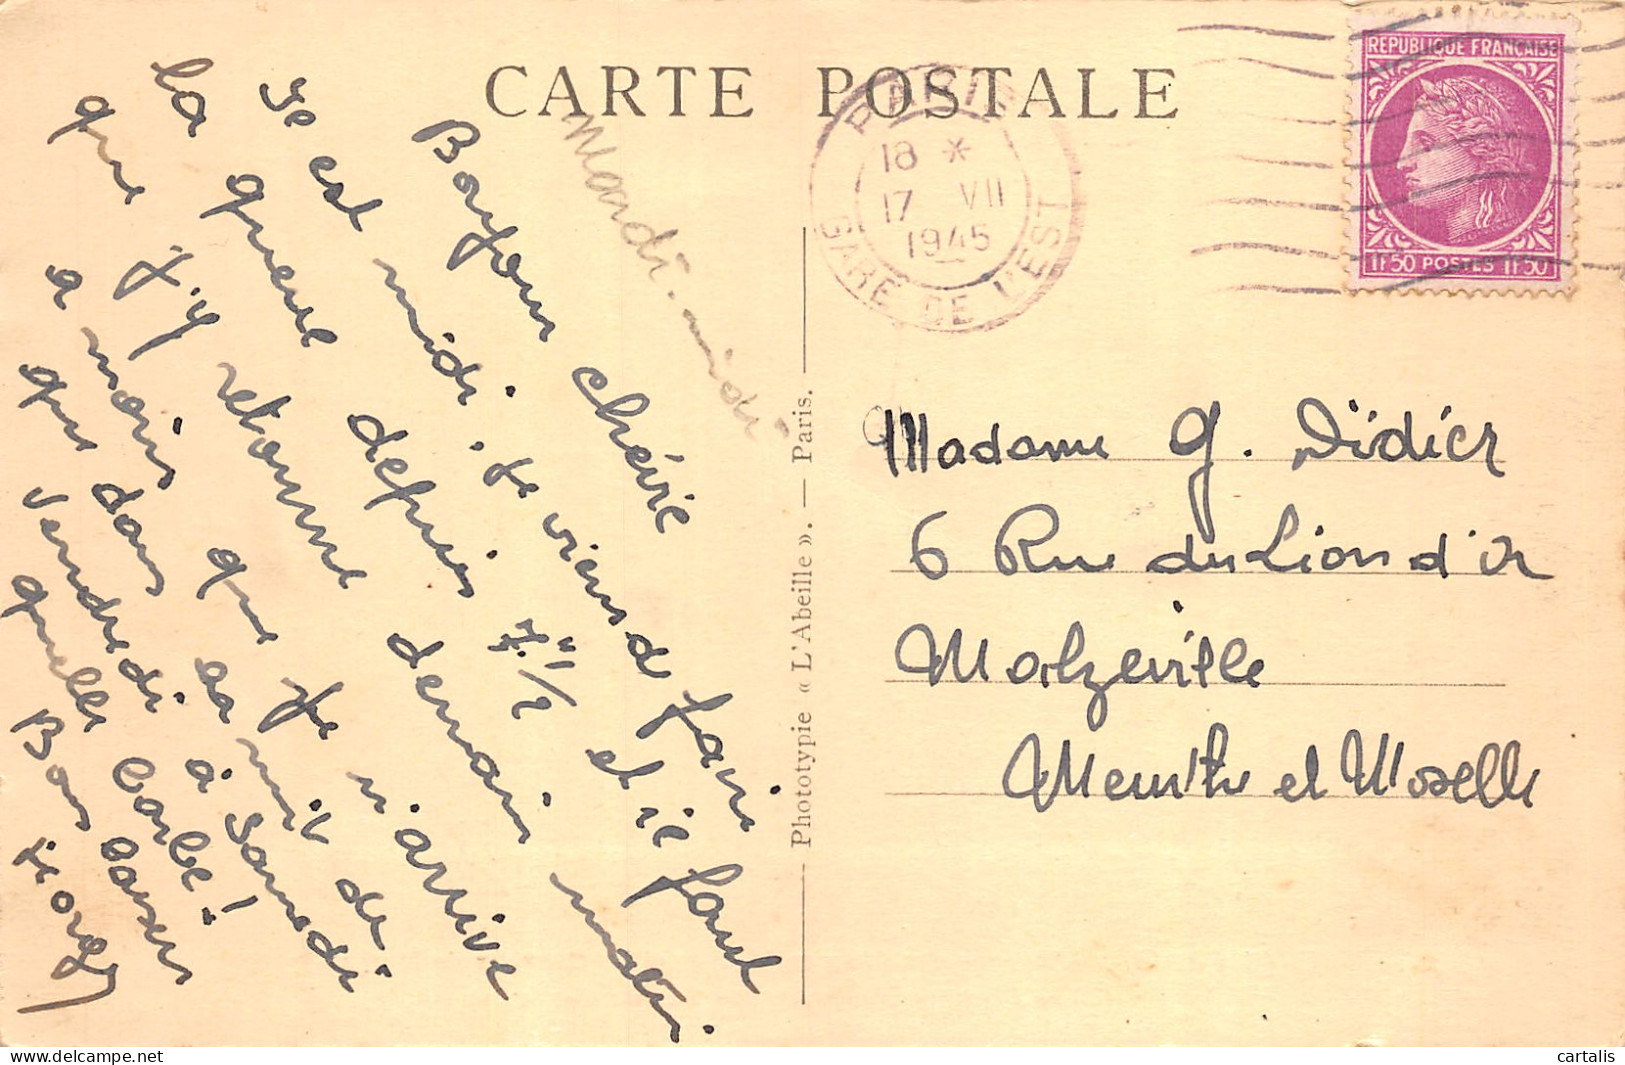 CARTE POSTALE
Mardi-midi
Bonjour chérie
Je est midi. Je viens d fair
la queue depuis 7"1/2 et il faut
que j'y retourne demain matin
a moins que je n'arrive
que dans la nuit de
Vendredi à Samedi
quelle barbe!
Bons baisers
Georges
Photototypie « L'Abeille ». — Paris.
PARIS
18 *
17 VII
1945
GARE DE L'EST
REPUBLIQUE FRANCAISE
1F50 POSTES 1F50
Madame G. Didier
6 Rue du Lion d'or
Malzéville
Meurthe et Moselle
cartalis